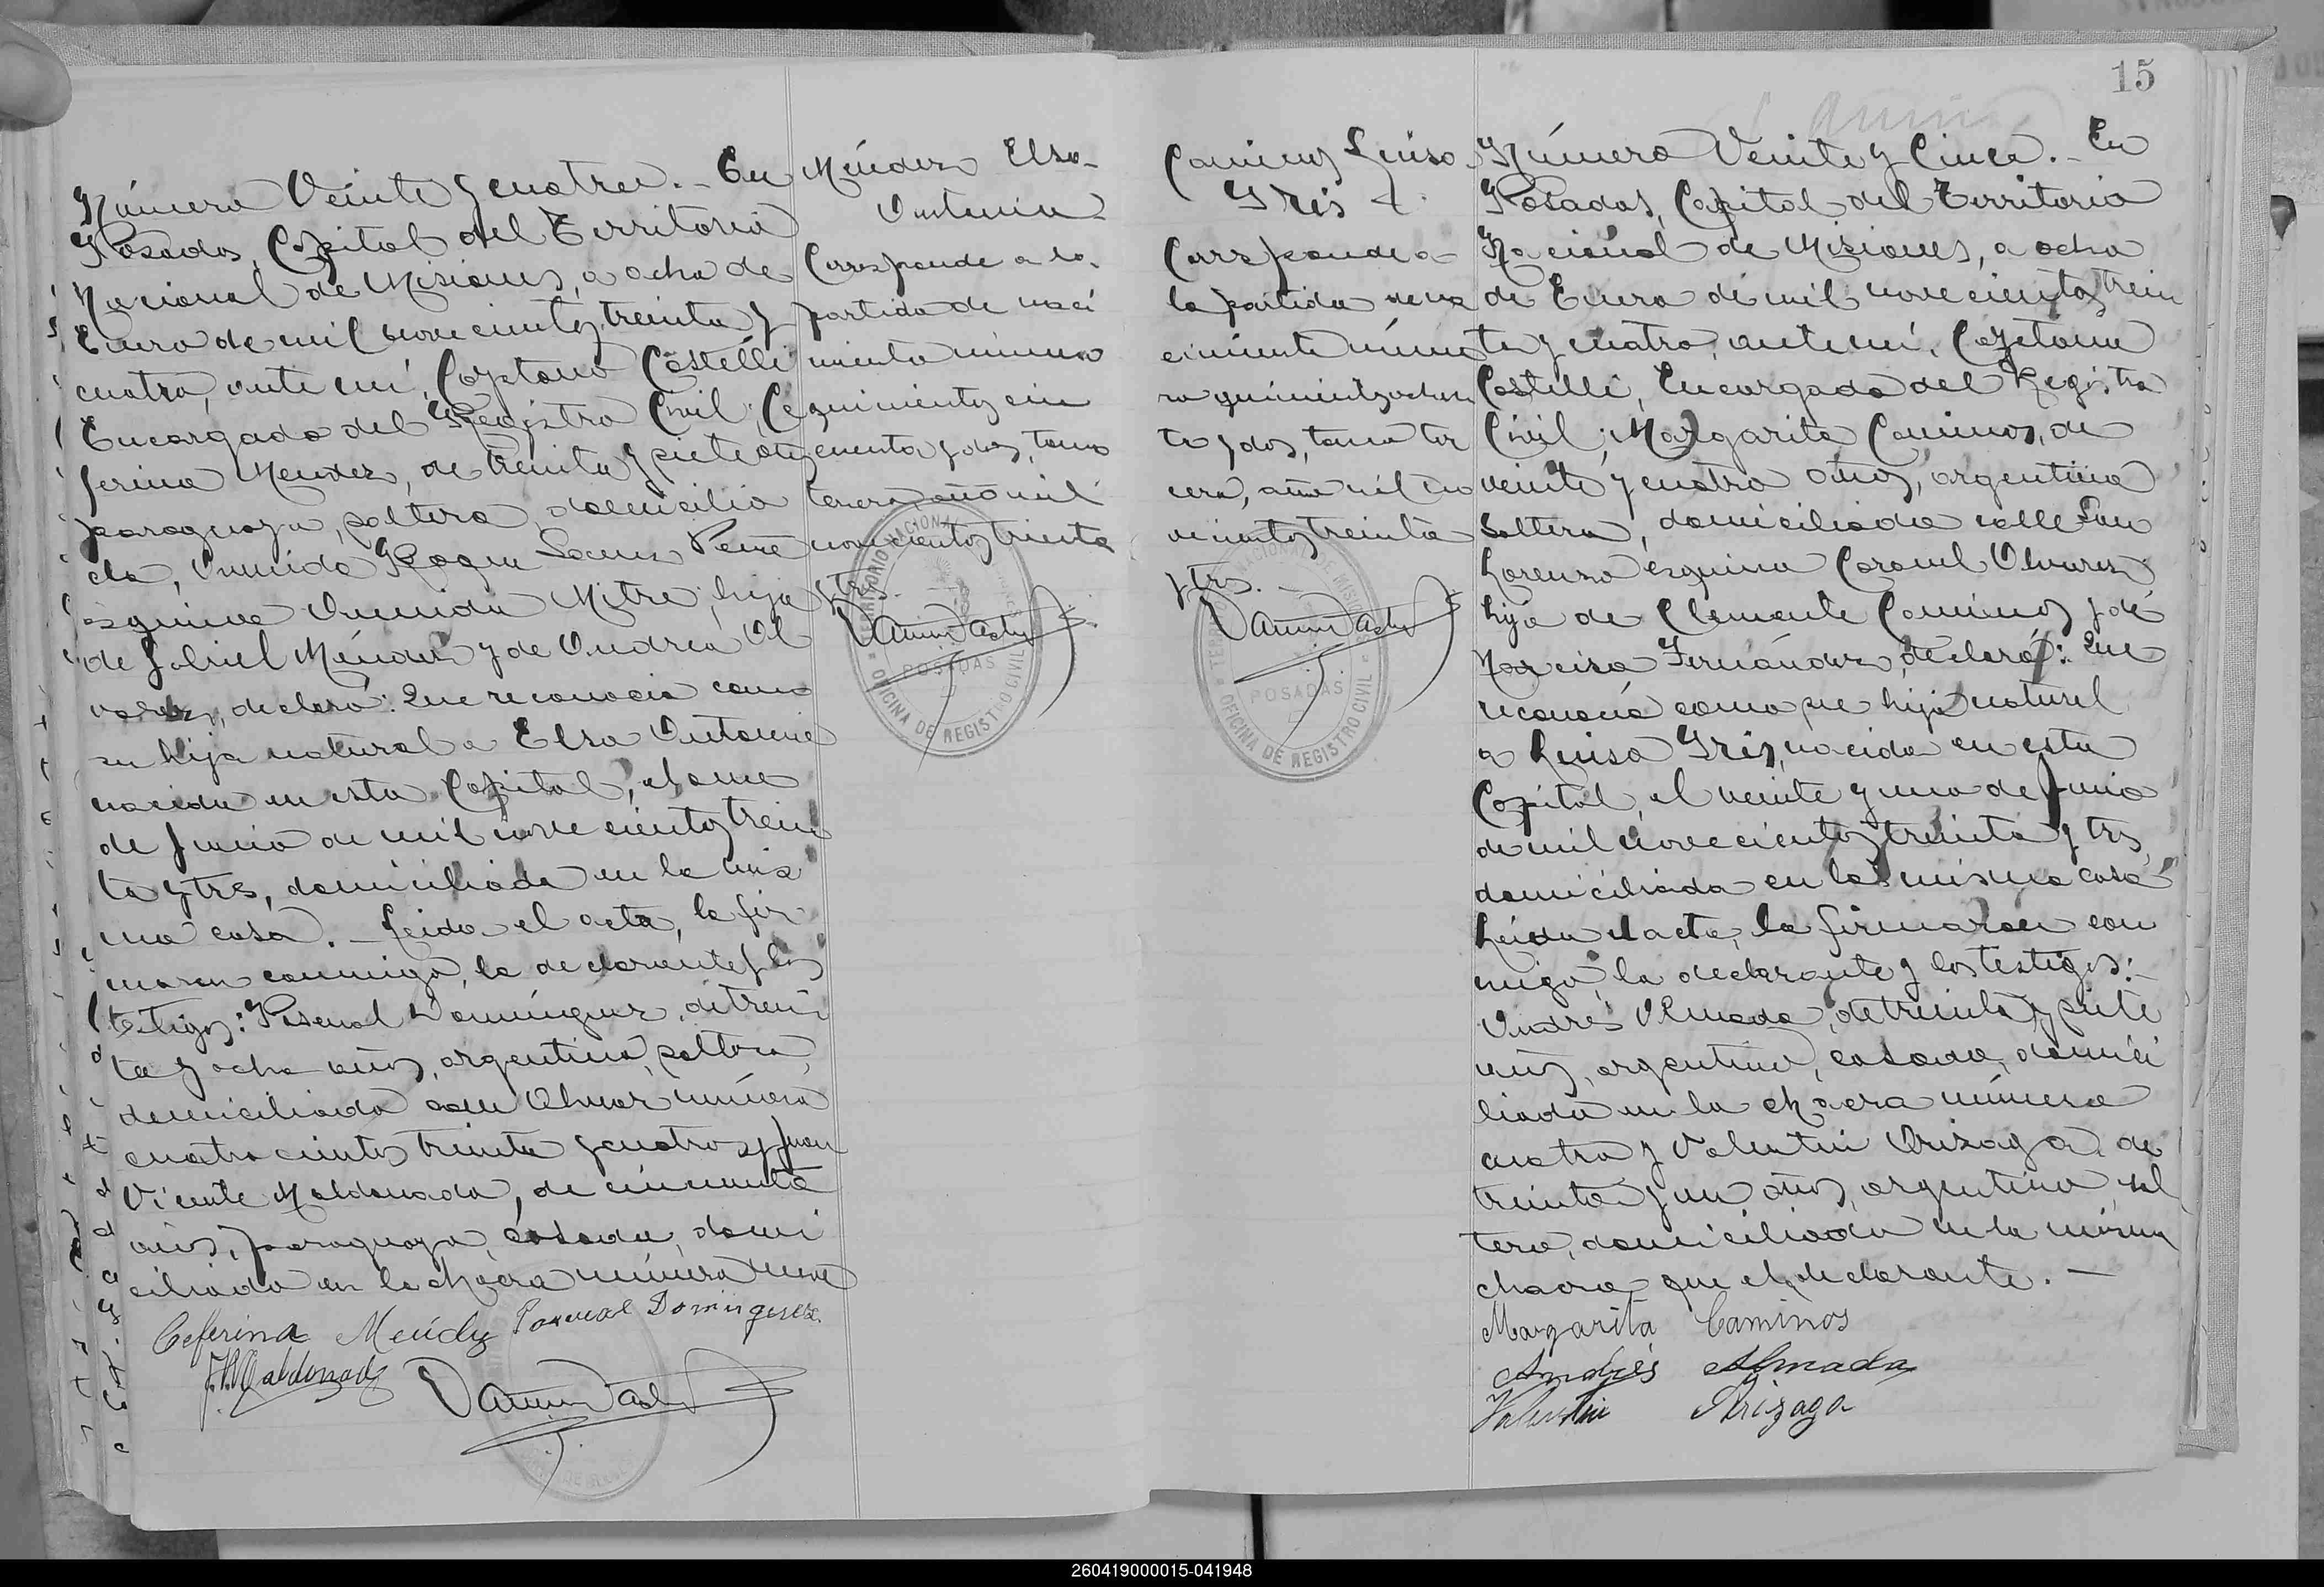 15
Número Veinte y cuatro. - En
Posadas, Capital del Territorio
Nacional de Misiones, a ocho de
Enero de mil novecientos treinta y
cuatro, ante mí, Cayetano Castelli
Encargado del Registro Civil; Ce
ferina Mendez, de treinta y siete años
paraguaya, soltera, domicilia
da, Avenida Roque Saenz Peña
esquina Avenida Mitre, hija
de Gabriel Méndez y de Andrea Al
varez, declaró: Que reconocía como
su hija natural a Elsa Antonia
nacida en esta Capital, el once
de Junio de mil novecientos trein
ta y tres, domiciliada en la mis
ma casa. - Leida el acta, la fir
maron conmigo, la declarante y los
testigos: Pascual Domínguez, de trein
ta y ocho años, argentino, soltero,
domiciliado calle Alvear número
cuatrocientos treinta y cuatro y Juan
Vicente Maldonado, de cincuenta
años, paraguayo, casado, domi
ciliado en la chacra número nueve
Ceferina Méndez Pascual Dominguez
J.V. Maldonado
Méndez Elsa
Antonia
Corresponde a la
partida de naci
miento número
quinientos cin
cuenta y dos, tomo
tercero, año mil
novecientos treinta
y tres.
TERRITORIO NACIONAL DE MISIONES
POSADAS
OFICINA DE REGISTRO CIVIL
Caminos Luisa
Iris
Corresponde a
la partida de na
cimiento núme
ro quinientos ochen
ta y dos, tomo ter
cero, año mil no
vecientos treinta
y tres. -
TERRITORIO NACIONAL DE MISIONES
POSADAS
OFICINA DE REGISTRO CIVIL
Número Veinte y Cinco. - En
Posadas, Capital del Territorio
Nacional de Misiones, a ocho
de Enero de mil novecientos trein
ta y cuatro, ante mí, Cayetano
Castelli, Encargado del Registro
Civil; Margarita Caminos, de
veinte y cuatro años, argentina
soltera, domiciliada calle San
Lorenzo esquina Coronel Alvarez
hija de Clemente Caminos y de
Narcisa Fernández, declaró: Que
reconocía como su hija natural
a Luisa Iris, nacida en esta
Capital, el veinte y uno de Junio
de mil novecientos treinta y tres,
domiciliada en la misma casa
Leida el acta, la firmaron con
migo, la declarante y los testigos: -
Andrés Almada, de treinta y siete
años, argentino, casado, domici
liado en la chacra número
cuatro y Valentin Arizaga, de
treinta y un años, argentino, sol
tero, domiciliado en la misma
chacra que el declarante. -
Margarita Caminos
Andrés Almada
Valentin Arizaga
260419000015-041948